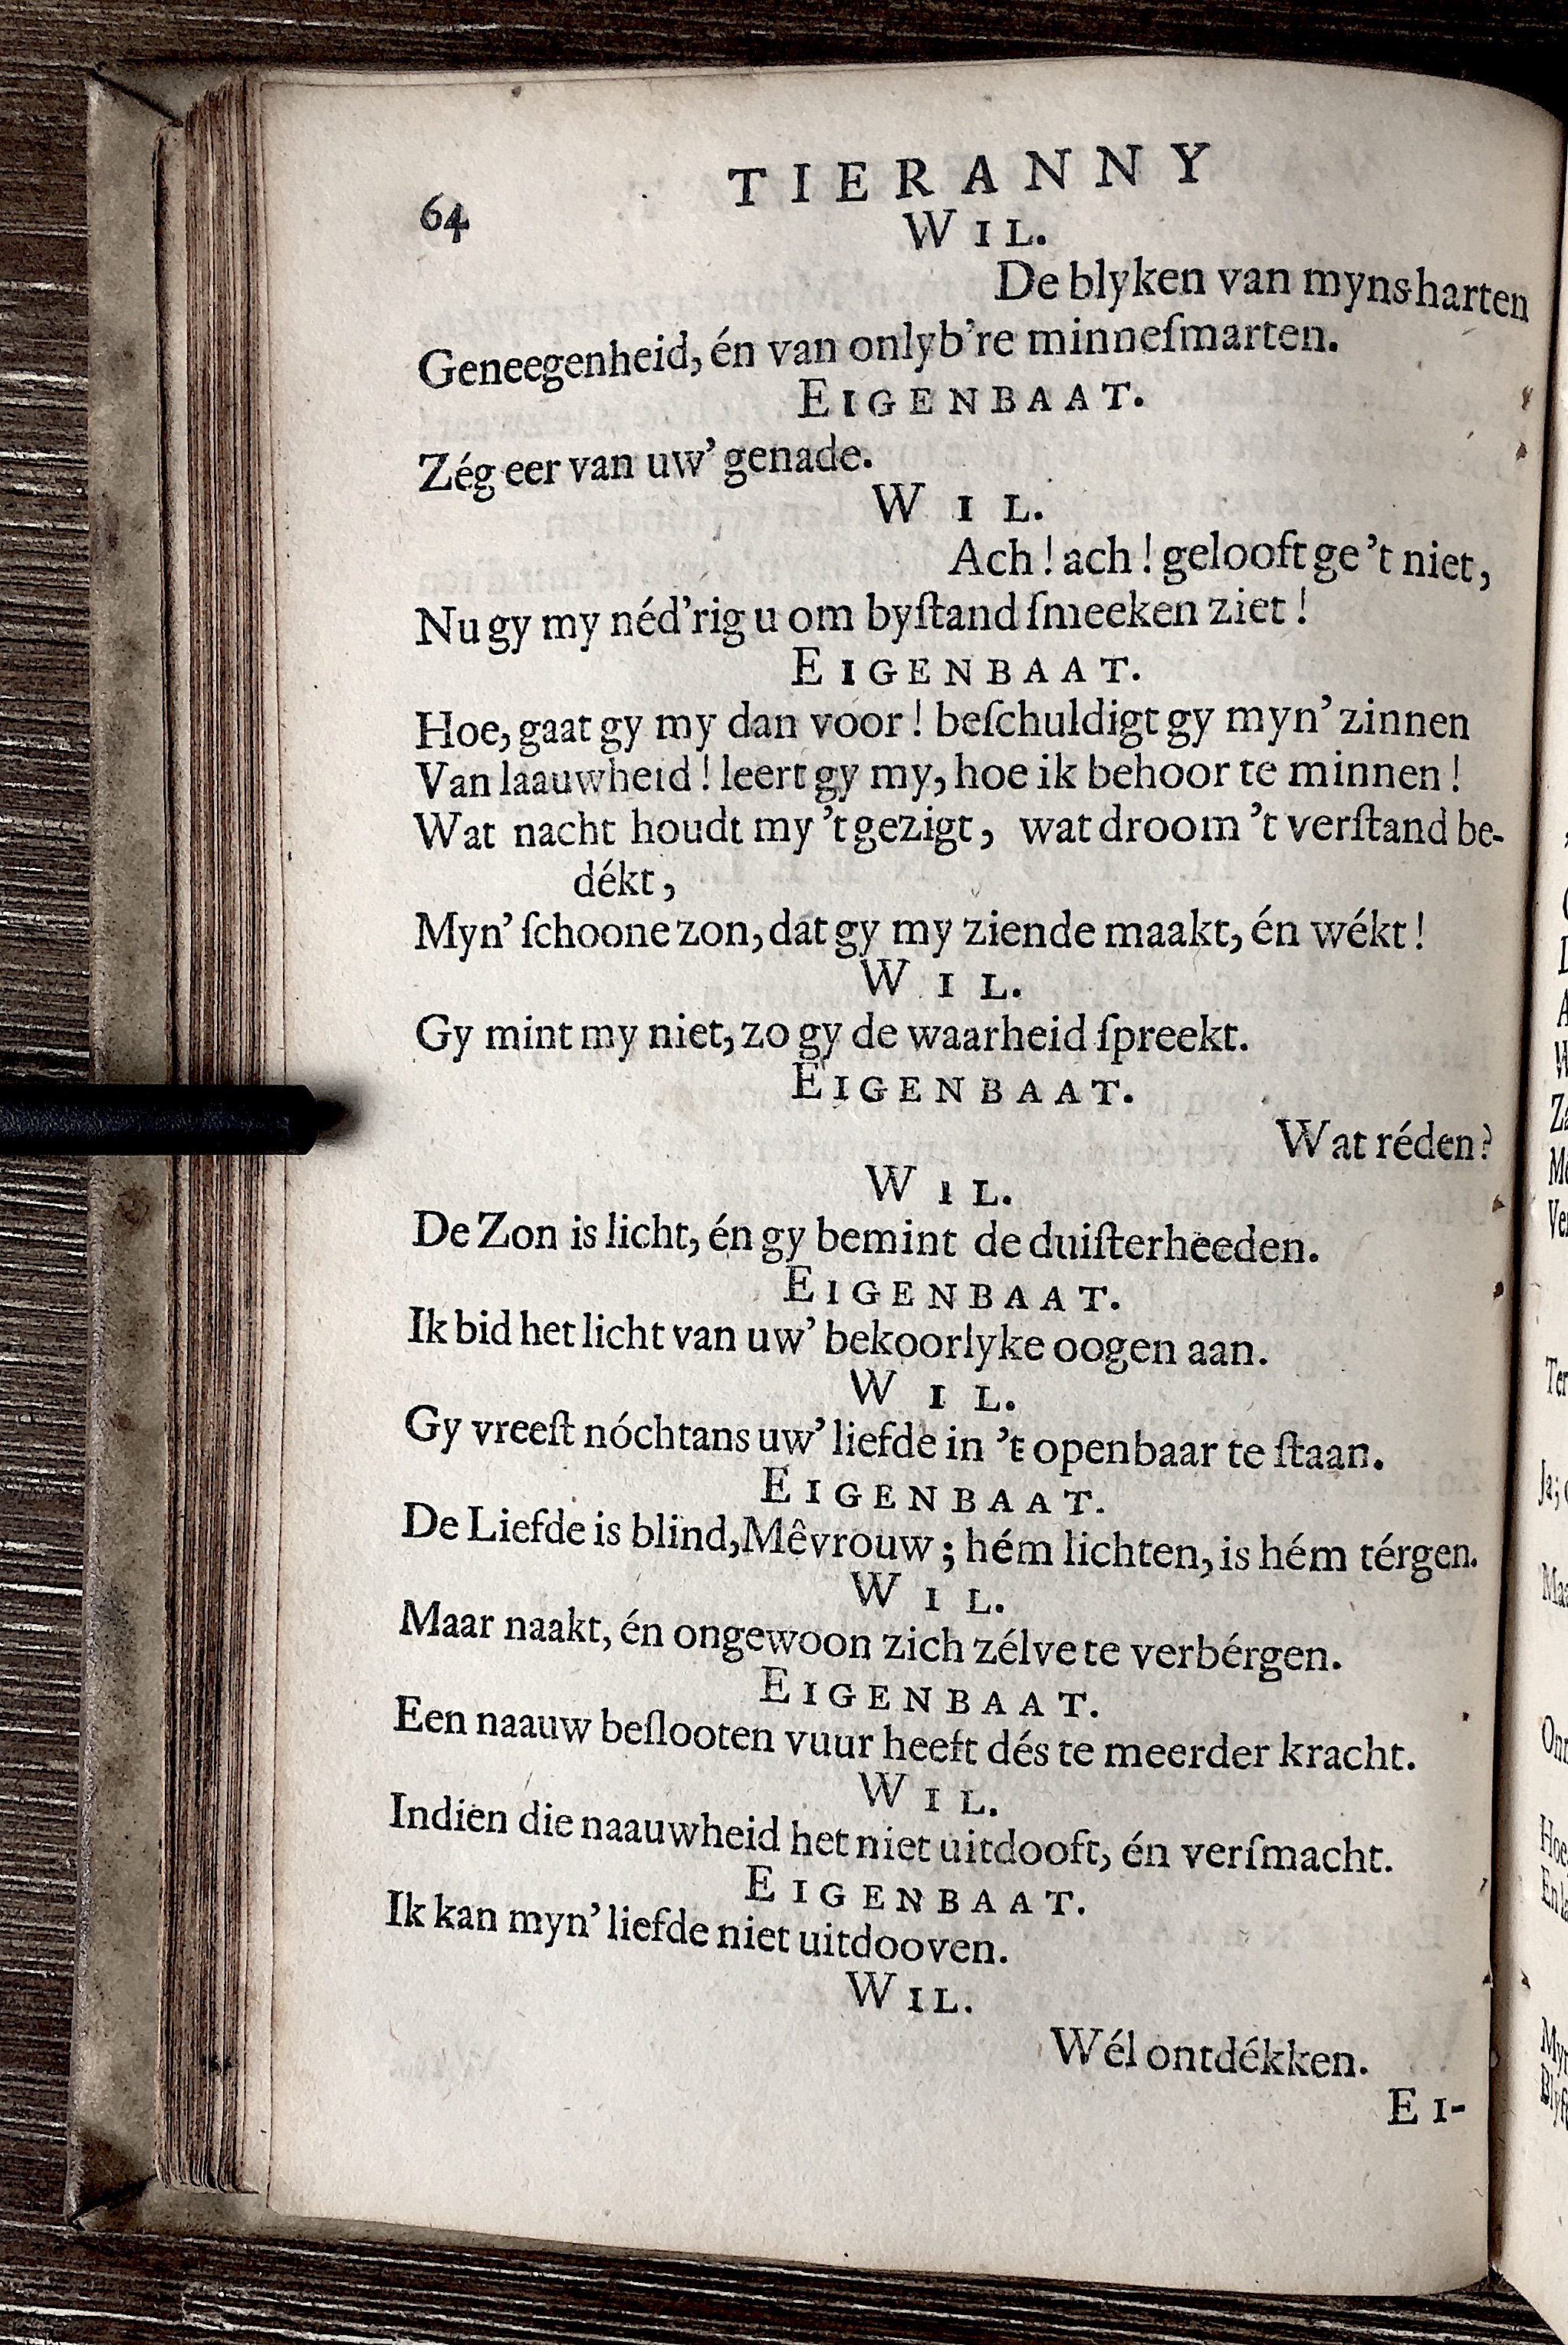 64 TIERANNY
WIL.
De blyken van myns harten
Geneegenheid, én van onlyb're minneſmarten.
EIGENBAAT.
Zég eer van uw' genade.
WIL.
Ach! ach! gelooft ge 't niet,
Nu gy my néd'rig u om byſtand ſmeeken ziet!
EIGENBAAT.
Hoe, gaat gy my dan voor! beſchuldigt gy myn' zinnen
Van laauwheid! leert gy my, hoe ik behoor te minnen!
Wat nacht houdt my 't gezigt, wat droom 't verſtand be-
dékt,
Myn' ſchoone zon, dat gy my ziende maakt, én wékt!
WIL.
Gy mint my niet, zo gy de waarheid ſpreekt.
EIGENBAAT.
Wat réden?
WIL.
De Zon is licht, én gy bemint de duiſterheeden.
EIGENBAAT.
Ik bid het licht van uw' bekoorlyke oogen aan.
WIL.
Gy vreeſt nóchtans uw' liefde in 't openbaar te ſtaan.
EIGENBAAT.
De Liefde is blind, Mêvrouw; hém lichten, is hém térgen.
WIL.
Maar naakt, én ongewoon zich zélve te verbérgen.
EIGENBAAT.
Een naauw beſlooten vuur heeft dés te meerder kracht.
WIL.
Indien die naauwheid het niet uitdooft, én verſmacht.
EIGENBAAT.
Ik kan myn' liefde niet uitdooven.
WIL.
Wél ontdékken.
EI-